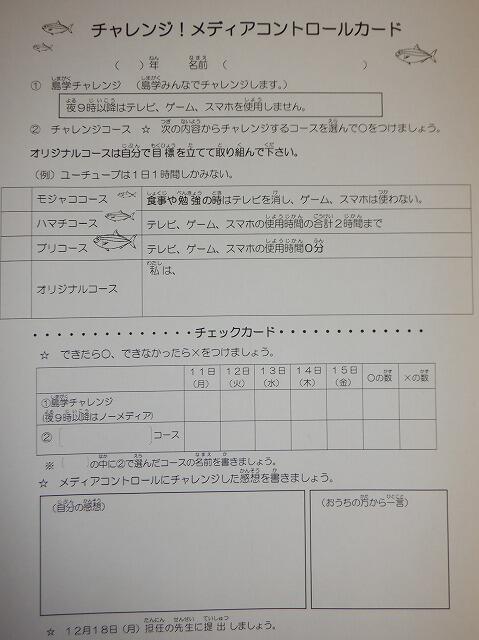 チャレンジ！メディアコントロールカード
（　　）年　　名前　（　　　　　　　　　　　）
① 島学チャレンジ　（島学みんなでチャレンジします。）
夜９時以降はテレビ、ゲーム、スマホを使用しません。
② チャレンジコース　☆ 次の内容からチャレンジするコースを選んで〇をつけましょう。
オリジナルコースは自分で目標を立てて取り組んで下さい。
（例）ユーチューブは１日１時間しかみない。
モジャココース　食事や勉強の時はテレビを消し、ゲーム、スマホは使わない。
ハマチコース　テレビ、ゲーム、スマホの使用時間の合計２時間まで
ブリコース　テレビ、ゲーム、スマホの使用時間０分
オリジナルコース　私は、
・・・・・・・・・・・・・・チェックカード・・・・・・・・・・・・・
☆ できたら〇、できなかったら×をつけましょう。
１１日（月）　１２日（火）　１３日（水）　１４日（木）　１５日（金）　〇の数　×の数
①島学チャレンジ
（夜９時以降はノーメディア）
②〔　　　　　　　〕コース
※〔　　〕の中に②で選んだコースの名前を書きましょう。
☆ メディアコントロールにチャレンジした感想を書きましょう。
（自分の感想）　（おうちの方から一言）
☆ １２月１８日（月）担任の先生に提出しましょう。